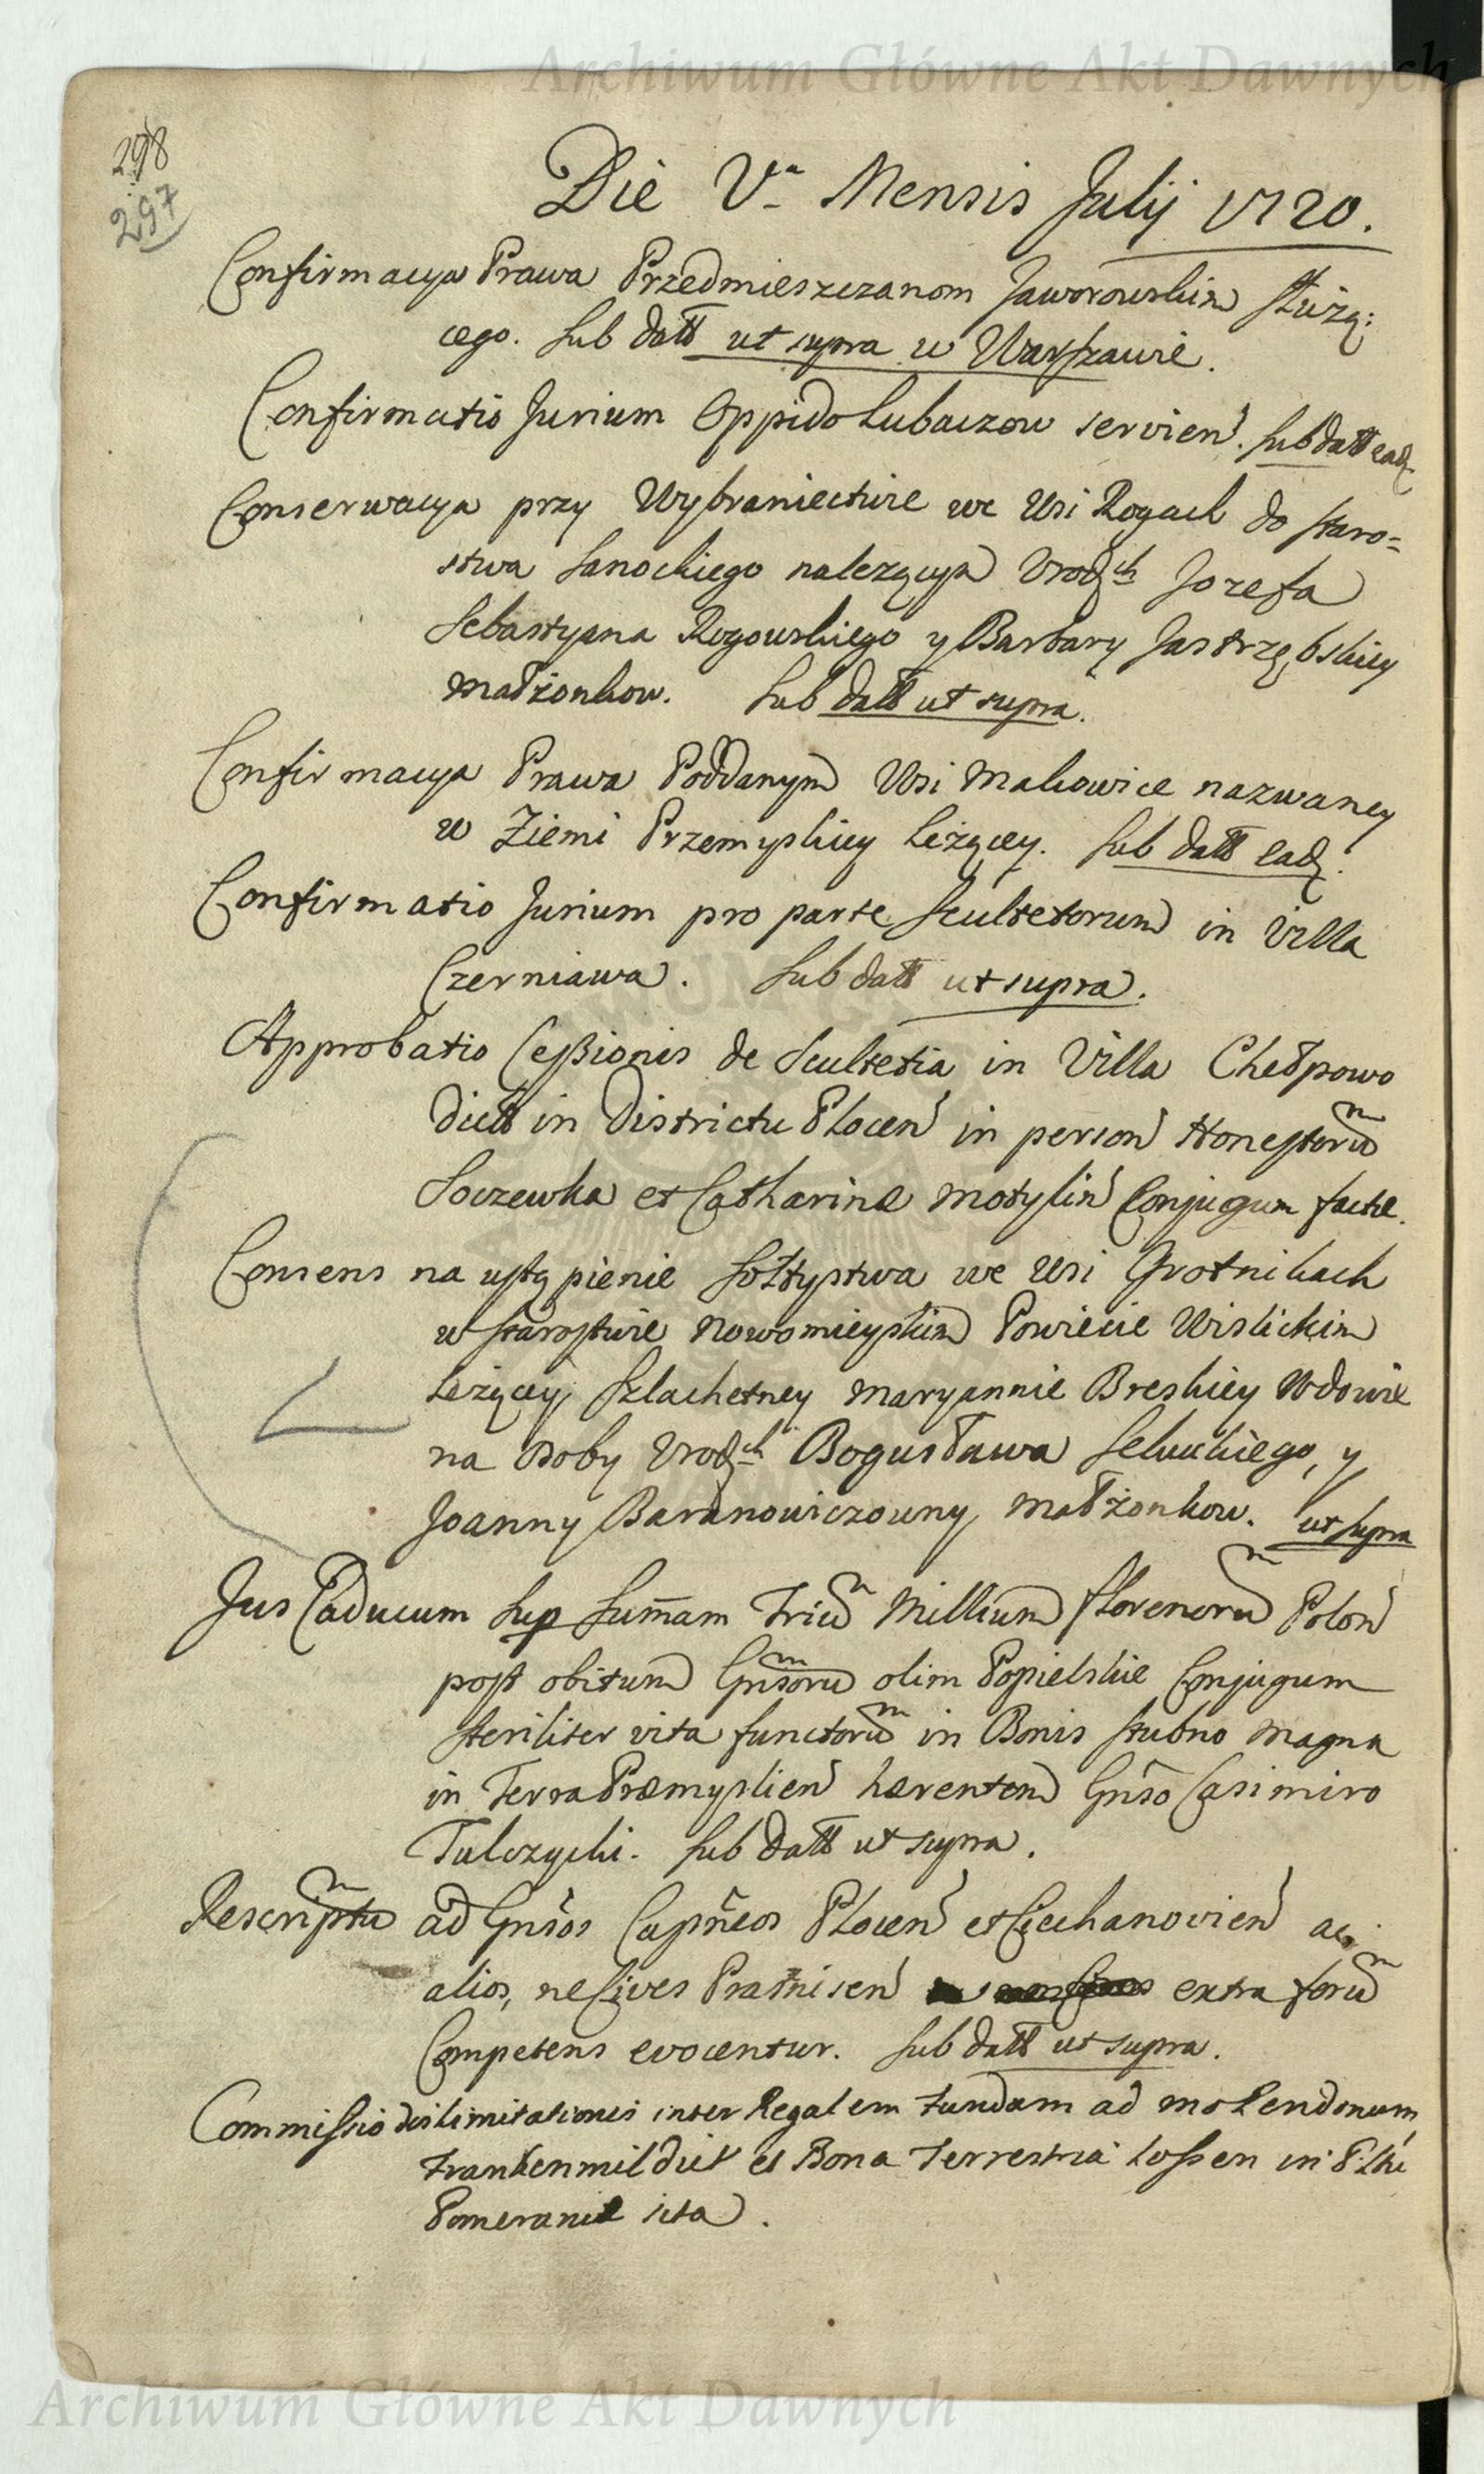 Archiwum Główne Akt Dawnych
298
297
Die Vta Mensis Julij 1720.
Confirmacya Prawa Przedmieszczanom Jaworowskim służą:
cego. Sub datt ut supra w Warszawie.
Confirmatio Jurium Oppido Lubaczow servien. Sub datt ead
Conserwacya przy Wybraniectwie we Wsi Rogach do Staro=
stwa Sanockiego nalezących Urodzch Jozefa
Sebastyana Rogowskiego y Barbary Jastrzębskiey
Małżonkow. Sub datt ut supra.
Confirmacya Prawa Poddanym Wsi Makowice nazwaney
w Ziemi Przemyskiey Leżącey. Sub datt ead.
Confirmatio Jurium pro parte Scultetorum in Villa
Czerniawa. Sub datt ut supra.
Approbatio Cessionis de Scultetia in Villa Chełpowo
dict in Districtu Plocen in person Honestorum
Soczewka et Catharinæ Motylin Conjugum factæ.
Consens na ustąpienie Sołtystwa we Wsi Grotnikach
w Starostwie Nowomieyskim Powiecie Wislickim
Leżącey, Szlachetney Maryannie Breskiey Wdowie
na Osoby Urodzch Bogusława Seluckiego, y
Joanny Baranowiczowny Małżonkow. ut supra
Jus Caducum sup Sumam Trium Millium Florenorum Polon
post obitum Gnsorum olim Popielskie Conjugum
steriliter vita functorum in Bonis Stubno magna
in Terra Præmyslien hærentem Gnso Casimiro
Tulczycki. Sub datt ut supra.
Rescriptum ad Gnsos Capneos Plocen et Ciechanovien ac
alios, ne Cives Prasnisen extra forum
Competens evocentur. Sub datt ut supra.
Commissio dislimitationis inter Regalem fundum ad molendinum
Frankenmil dict et Bona Terrestria Lossen in Pltu
Pomeraniæ sita.
Archiwum Główne Akt Dawnych